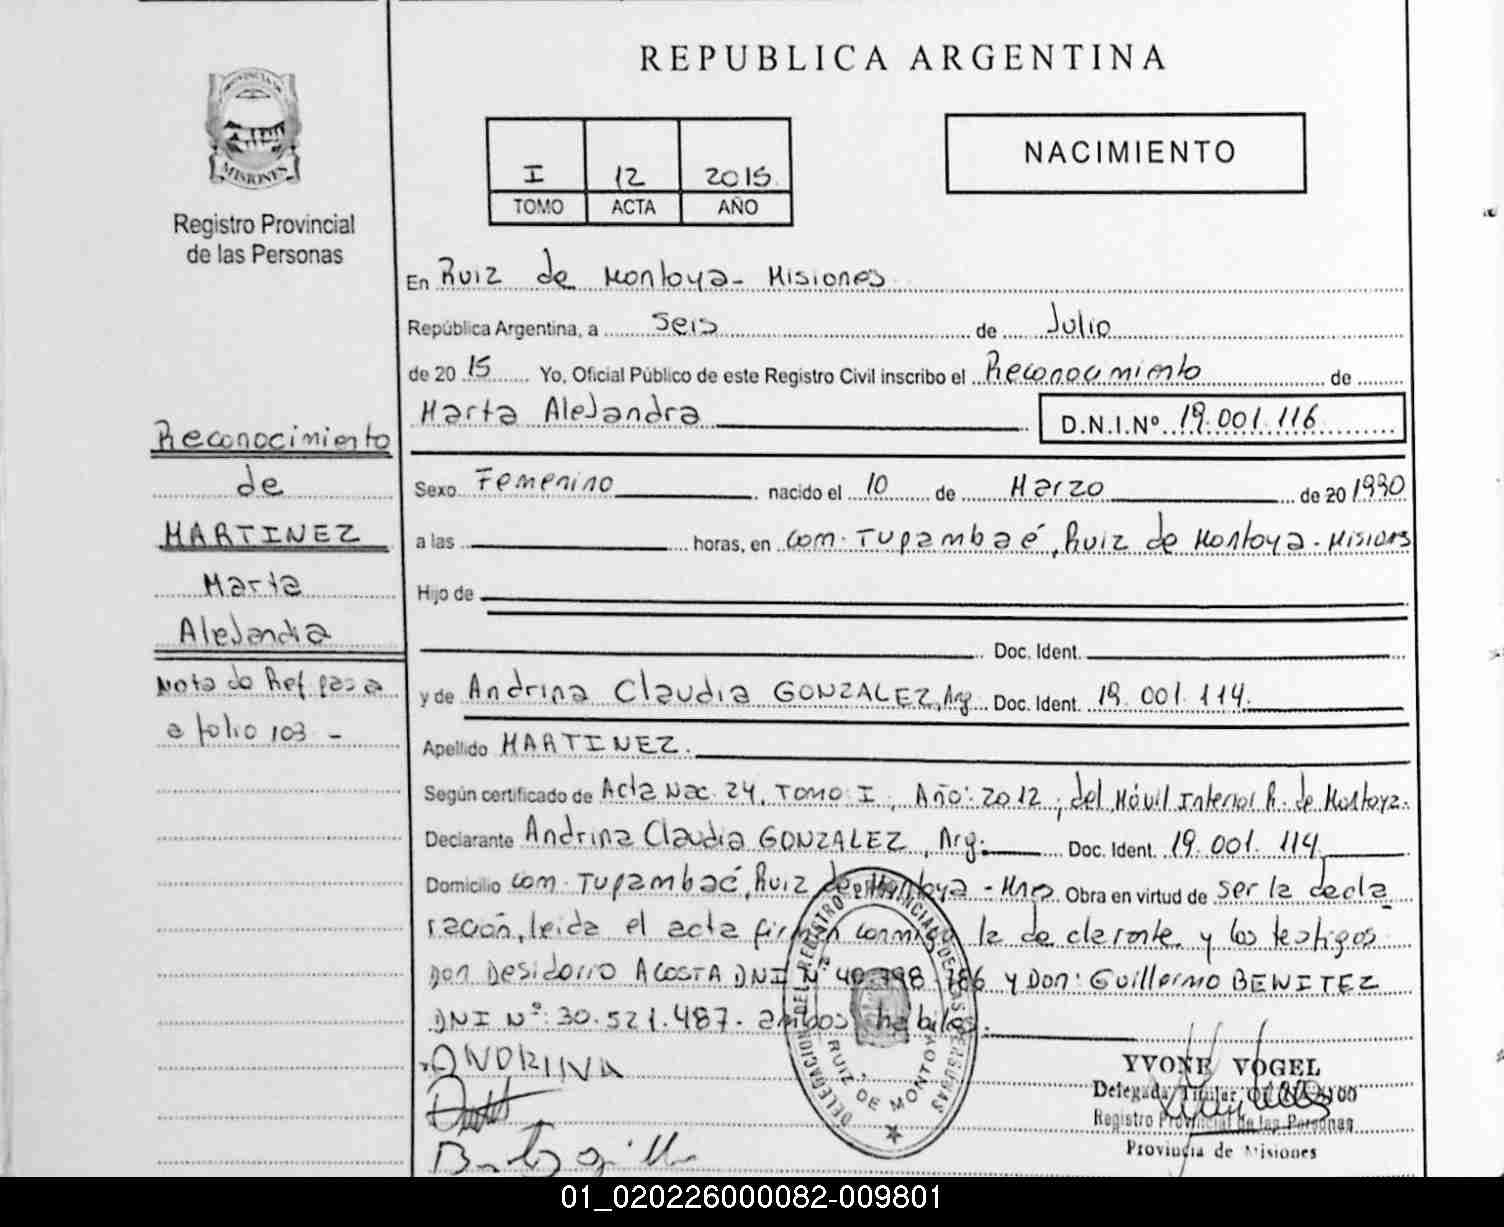 REPUBLICA ARGENTINA
MISIONES
Registro Provincial
de las Personas
I 12 2015
TOMO ACTA AÑO
NACIMIENTO
En Ruiz de Montoya - Misiones
República Argentina, a Seis de Julio
de 20 15 Yo, Oficial Público de este Registro Civil inscribo el Reconocimiento de
Marta Alejandra
D.N.I.Nº 19.001.116
Reconocimiento
de
MARTINEZ
Marta
Alejandra
Nota de Ref. pasa
a folio 103 -
Sexo Femenino nacido el 10 de Marzo de 20 1990
a las horas, en Com. Tupambaé, Ruiz de Montoya - Misiones
Hijo de
Doc. Ident.
y de Andrina Claudia GONZALEZ, Arg. Doc. Ident. 19.001.114.
Apellido MARTINEZ.
Según certificado de Acta Nac. 24, TOMO I, Año: 2012, del Móvil Interior R. de Montoya.
Declarante Andrina Claudia GONZALEZ, Arg. Doc. Ident. 19.001.114
Domicilio Com. Tupambaé, Ruiz de Montoya - Mnes Obra en virtud de ser la decla
ración, leida el acta firman conmigo la declarante y los testigos
Don Desidorio ACOSTA DNI Nº 40.798.786 y Don: Guillermo BENITEZ
DNI Nº: 30.521.487. ambos habiles.
ANDRINA
DELEGACION DEL REGISTRO PROVINCIAL DE LAS PERSONAS
RUIZ DE MONTOYA
YVONE VOGEL
Delegada Titular
Registro Provincial de las Personas
Provincia de Misiones
01_020226000082-009801